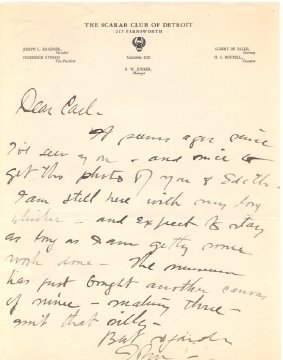 THE SCARAB CLUB OF DETROIT
217 FARNSWORTH
JOSEPH L. KRAEMER,
President
ALBERT DE SALLE,
Secretary
Vice-President
Columbia
Treasurer
E. W. JUNKER,
Manager
Dear Carl -
It seems ages since
I've seen you - and nice to
get this photo of you & Edith.
I am still here with my boy
- and expect to stay
as long as I am getting some
work done - The museum
has just bought another canvas
of mine - making three -
ain't that silly -
Best regards